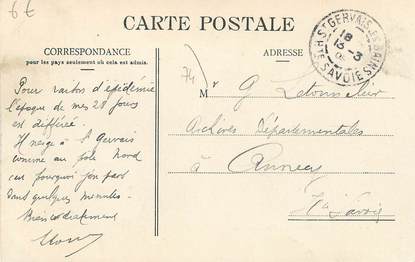 6€
CARTE POSTALE
CORRESPONDANCE
pour les pays seulement où cela est admis.
ADRESSE
ST GERVAIS LES BAINS
18
13 - 3
HTE SAVOIE
74
Pour raison d'épidémie
l'époque de mes 28 jours
est différée.
Il neige à St Gervais
comme au pôle Nord
c'est pourquoi j'en pars
dans quelques minutes.
Bien cordialement
M
G Letonnelier
Archives Départementales
à
Annecy
Hte Savoie